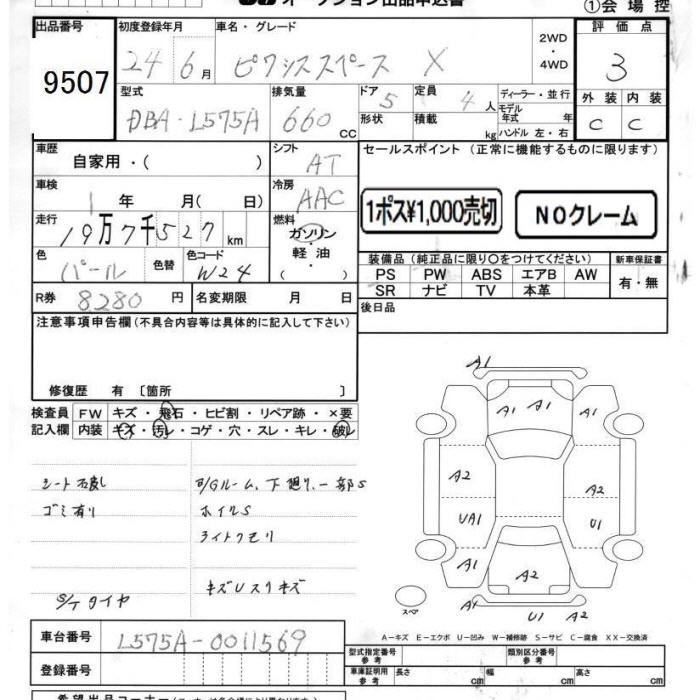 オークション出品申込書
①会場控
出品番号 初度登録年月 車名・グレード 評価点
9507 24 6月 ピクシススペース X 2WD・4WD 3
型式 排気量 ドア 5 定員 4人 ディーラー・並行
モデル年式 年
外装 内装
DBA-L575A 660cc 形状 積載 kg ハンドル 左・右 C C
車歴 シフト セールスポイント (正常に機能するものに限ります)
自家用・( ) AT
車検 冷房
1年 月( 日) AAC 1ポス¥1,000売切 NOクレーム
走行 燃料
19万7千527km ガソリン・軽油・( )
色 色替 色コード 装備品(純正品に限り〇をつけてください) 新車保証書
パール W24 PS PW ABS エアB AW 有・無
SR ナビ TV 本革
R券 8280円 名変期限 月 日 後日品
注意事項申告欄(不具合内容等は具体的に記入して下さい)
修復歴 有 〔箇所 〕
検査員 FW キズ・飛石・ヒビ割・リペア跡・×要
記入欄 内装 キズ・汚レ・コゲ・穴・スレ・キレ・破レ
A1
A1 A1
A2 A2
UA1 U1
A1 A1
A2
A1 U1 A2
スペア
ゴミ有り ホイルS
ライトクモリ
S/Tタイヤ キズUスリキズ
A-キズ E-エクボ U-凹み W-補修跡 S-サビ C-腐食 XX-交換済
車台番号 L575A-0011569
登録番号
型式指定番号 参考 類別区分番号 参考
車庫証明用 参考 長さ cm 幅 cm 高さ cm
希望出品コーナー